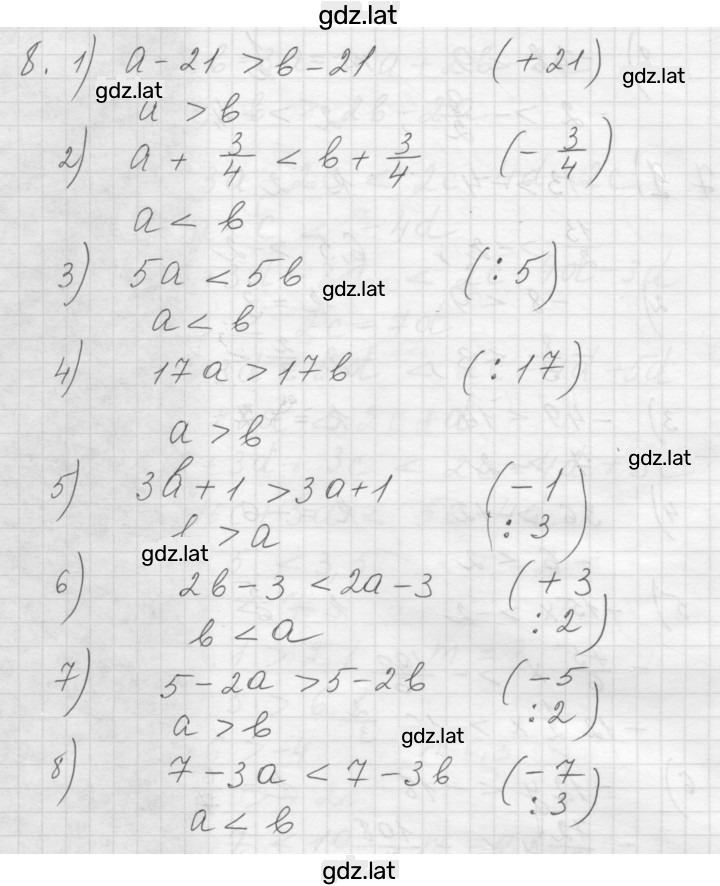 gdz.lat
8. 1) a - 21 > b - 21 (+ 21)
gdz.lat
gdz.lat
a > b
2) a + 3/4 < b + 3/4 (- 3/4)
a < b
3) 5a < 5b (: 5)
gdz.lat
a < b
4) 17a > 17b (: 17)
a > b
gdz.lat
5) 3b + 1 > 3a + 1 (- 1
: 3)
b > a
gdz.lat
6) 2b - 3 < 2a - 3 (+ 3
: 2)
b < a
7) 5 - 2a > 5 - 2b (- 5
: 2)
a > b
gdz.lat
8) 7 - 3a < 7 - 3b (- 7
: 3)
a < b
gdz.lat